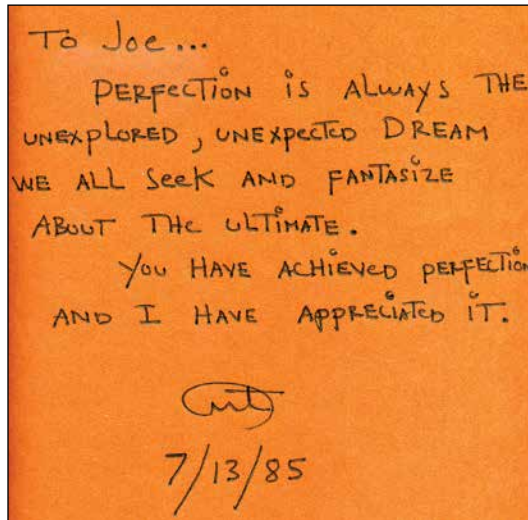 To Joe...
PERFECTION iS ALWAYS THE
UNEXPLORED, UNEXPECTED DREAM
WE ALL SEEK AND FANTASIZE
ABOUT THE ULTIMATE.
YOU HAVE ACHIEVED PERFECTION
AND I HAVE APPRECIATED IT.
7/13/85